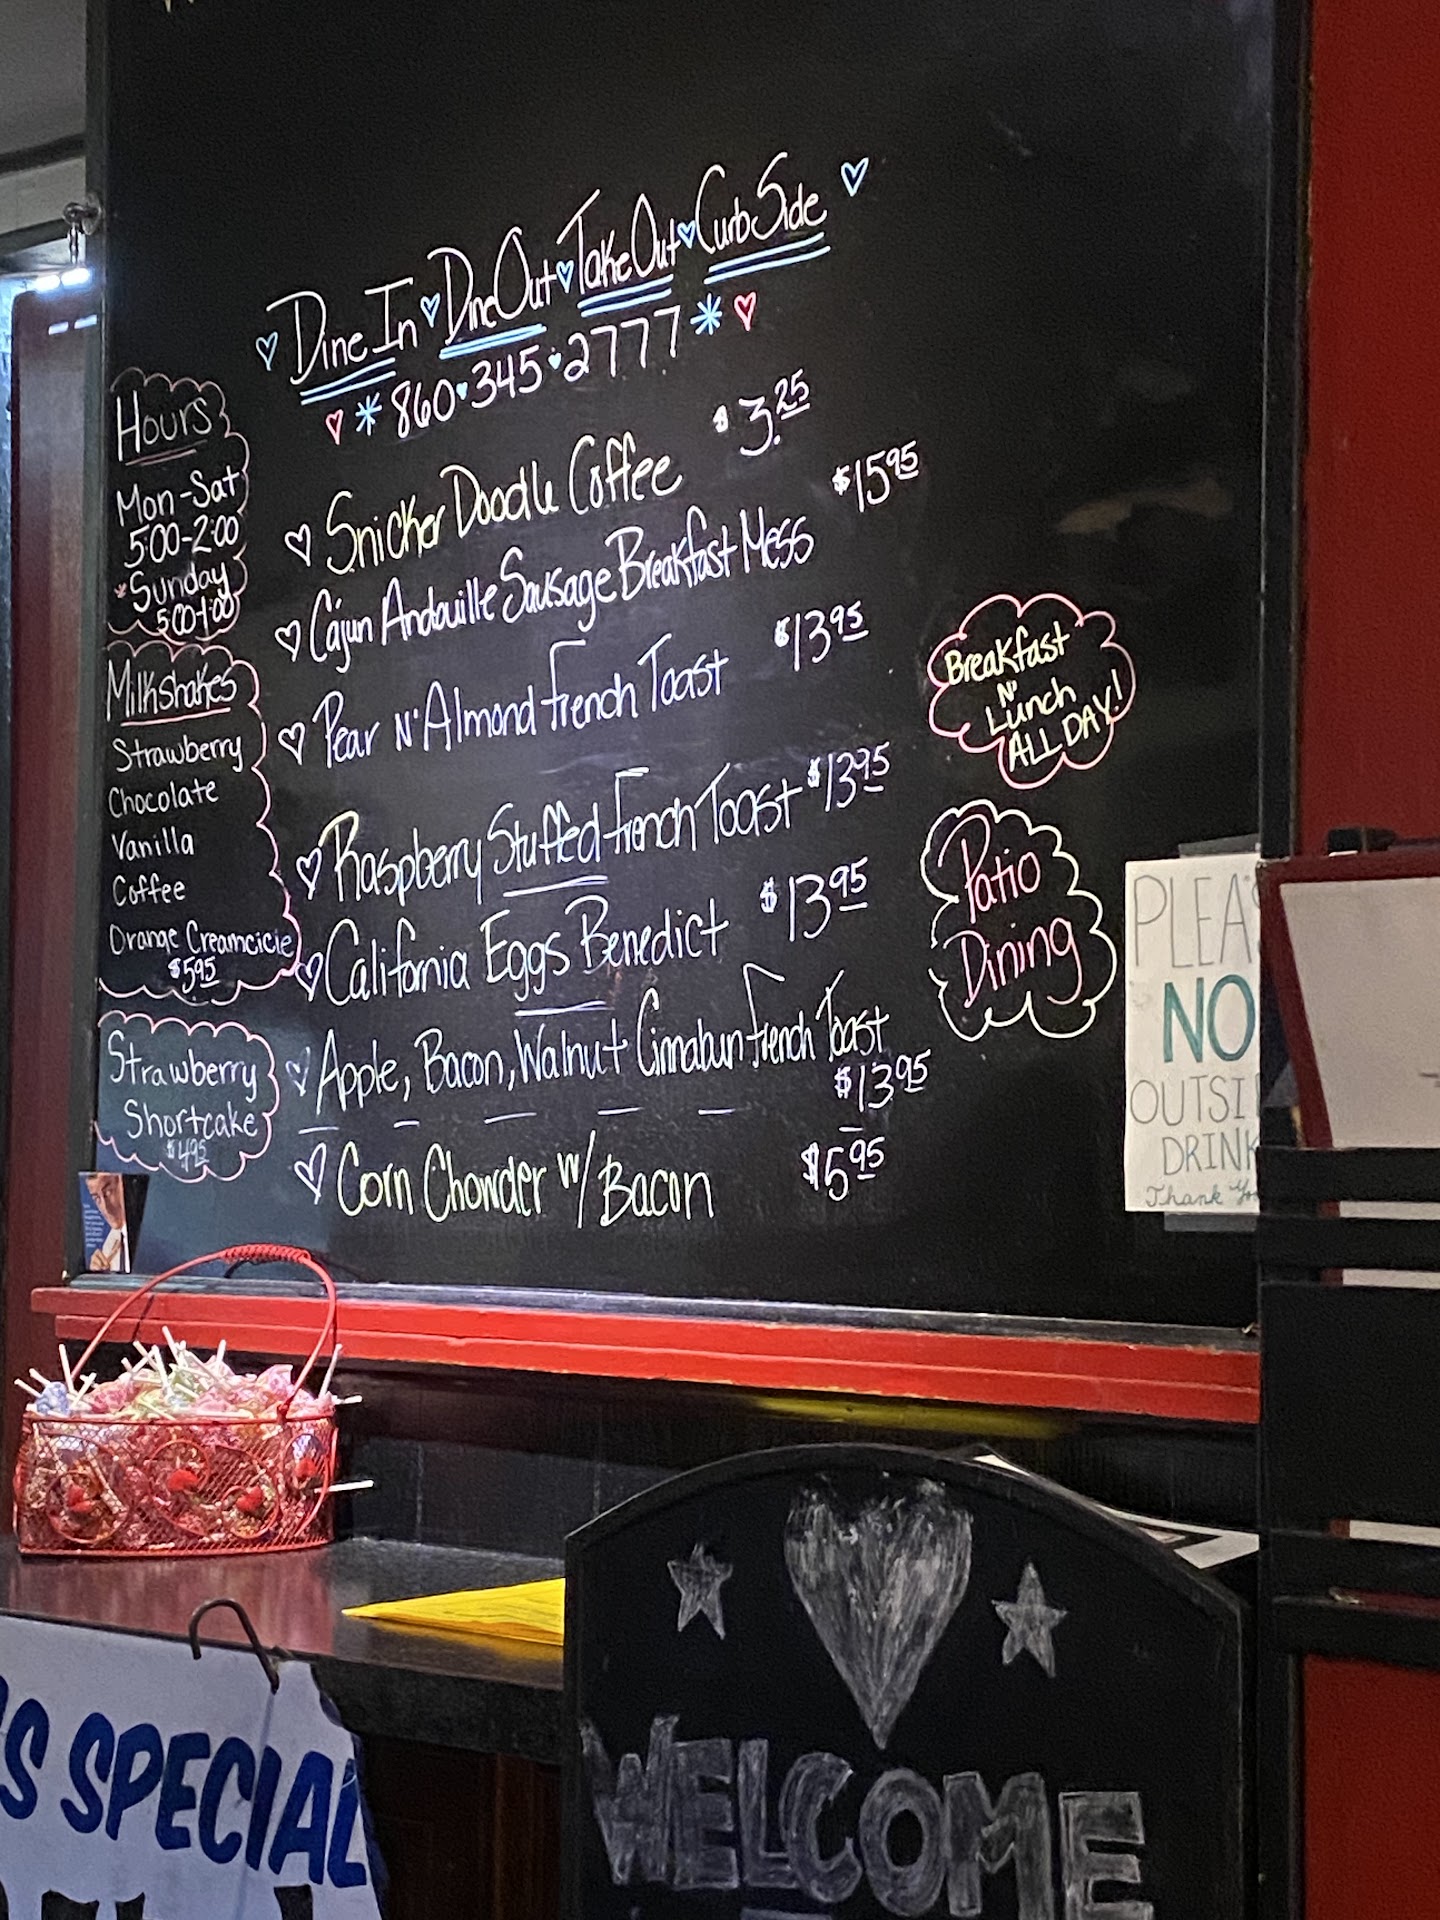 Dine In Dine Out Take Out Curb Side
860·345·2777
Hours
Mon-Sat
5:00-2:00
*Sunday
5:00-1:00
Milkshakes
Strawberry
Chocolate
Vanilla
Coffee
Orange Creamcicle
$5.95
Strawberry
Shortcake
$4.95
Snicker Doodle Coffee $3.25
Cajun Andouille Sausage Breakfast Mess $15.95
Pear N' Almond French Toast $13.95
Raspberry Stuffed French Toast $13.95
California Eggs Benedict $13.95
Apple, Bacon, Walnut Cinnabun French Toast
$13.95
Corn Chowder w/ Bacon $5.95
Breakfast
N'
Lunch
ALL DAY!
Patio
Dining
PLEAS
NO
OUTSI
DRINK
Thank You
S SPECIAL
WELCOME